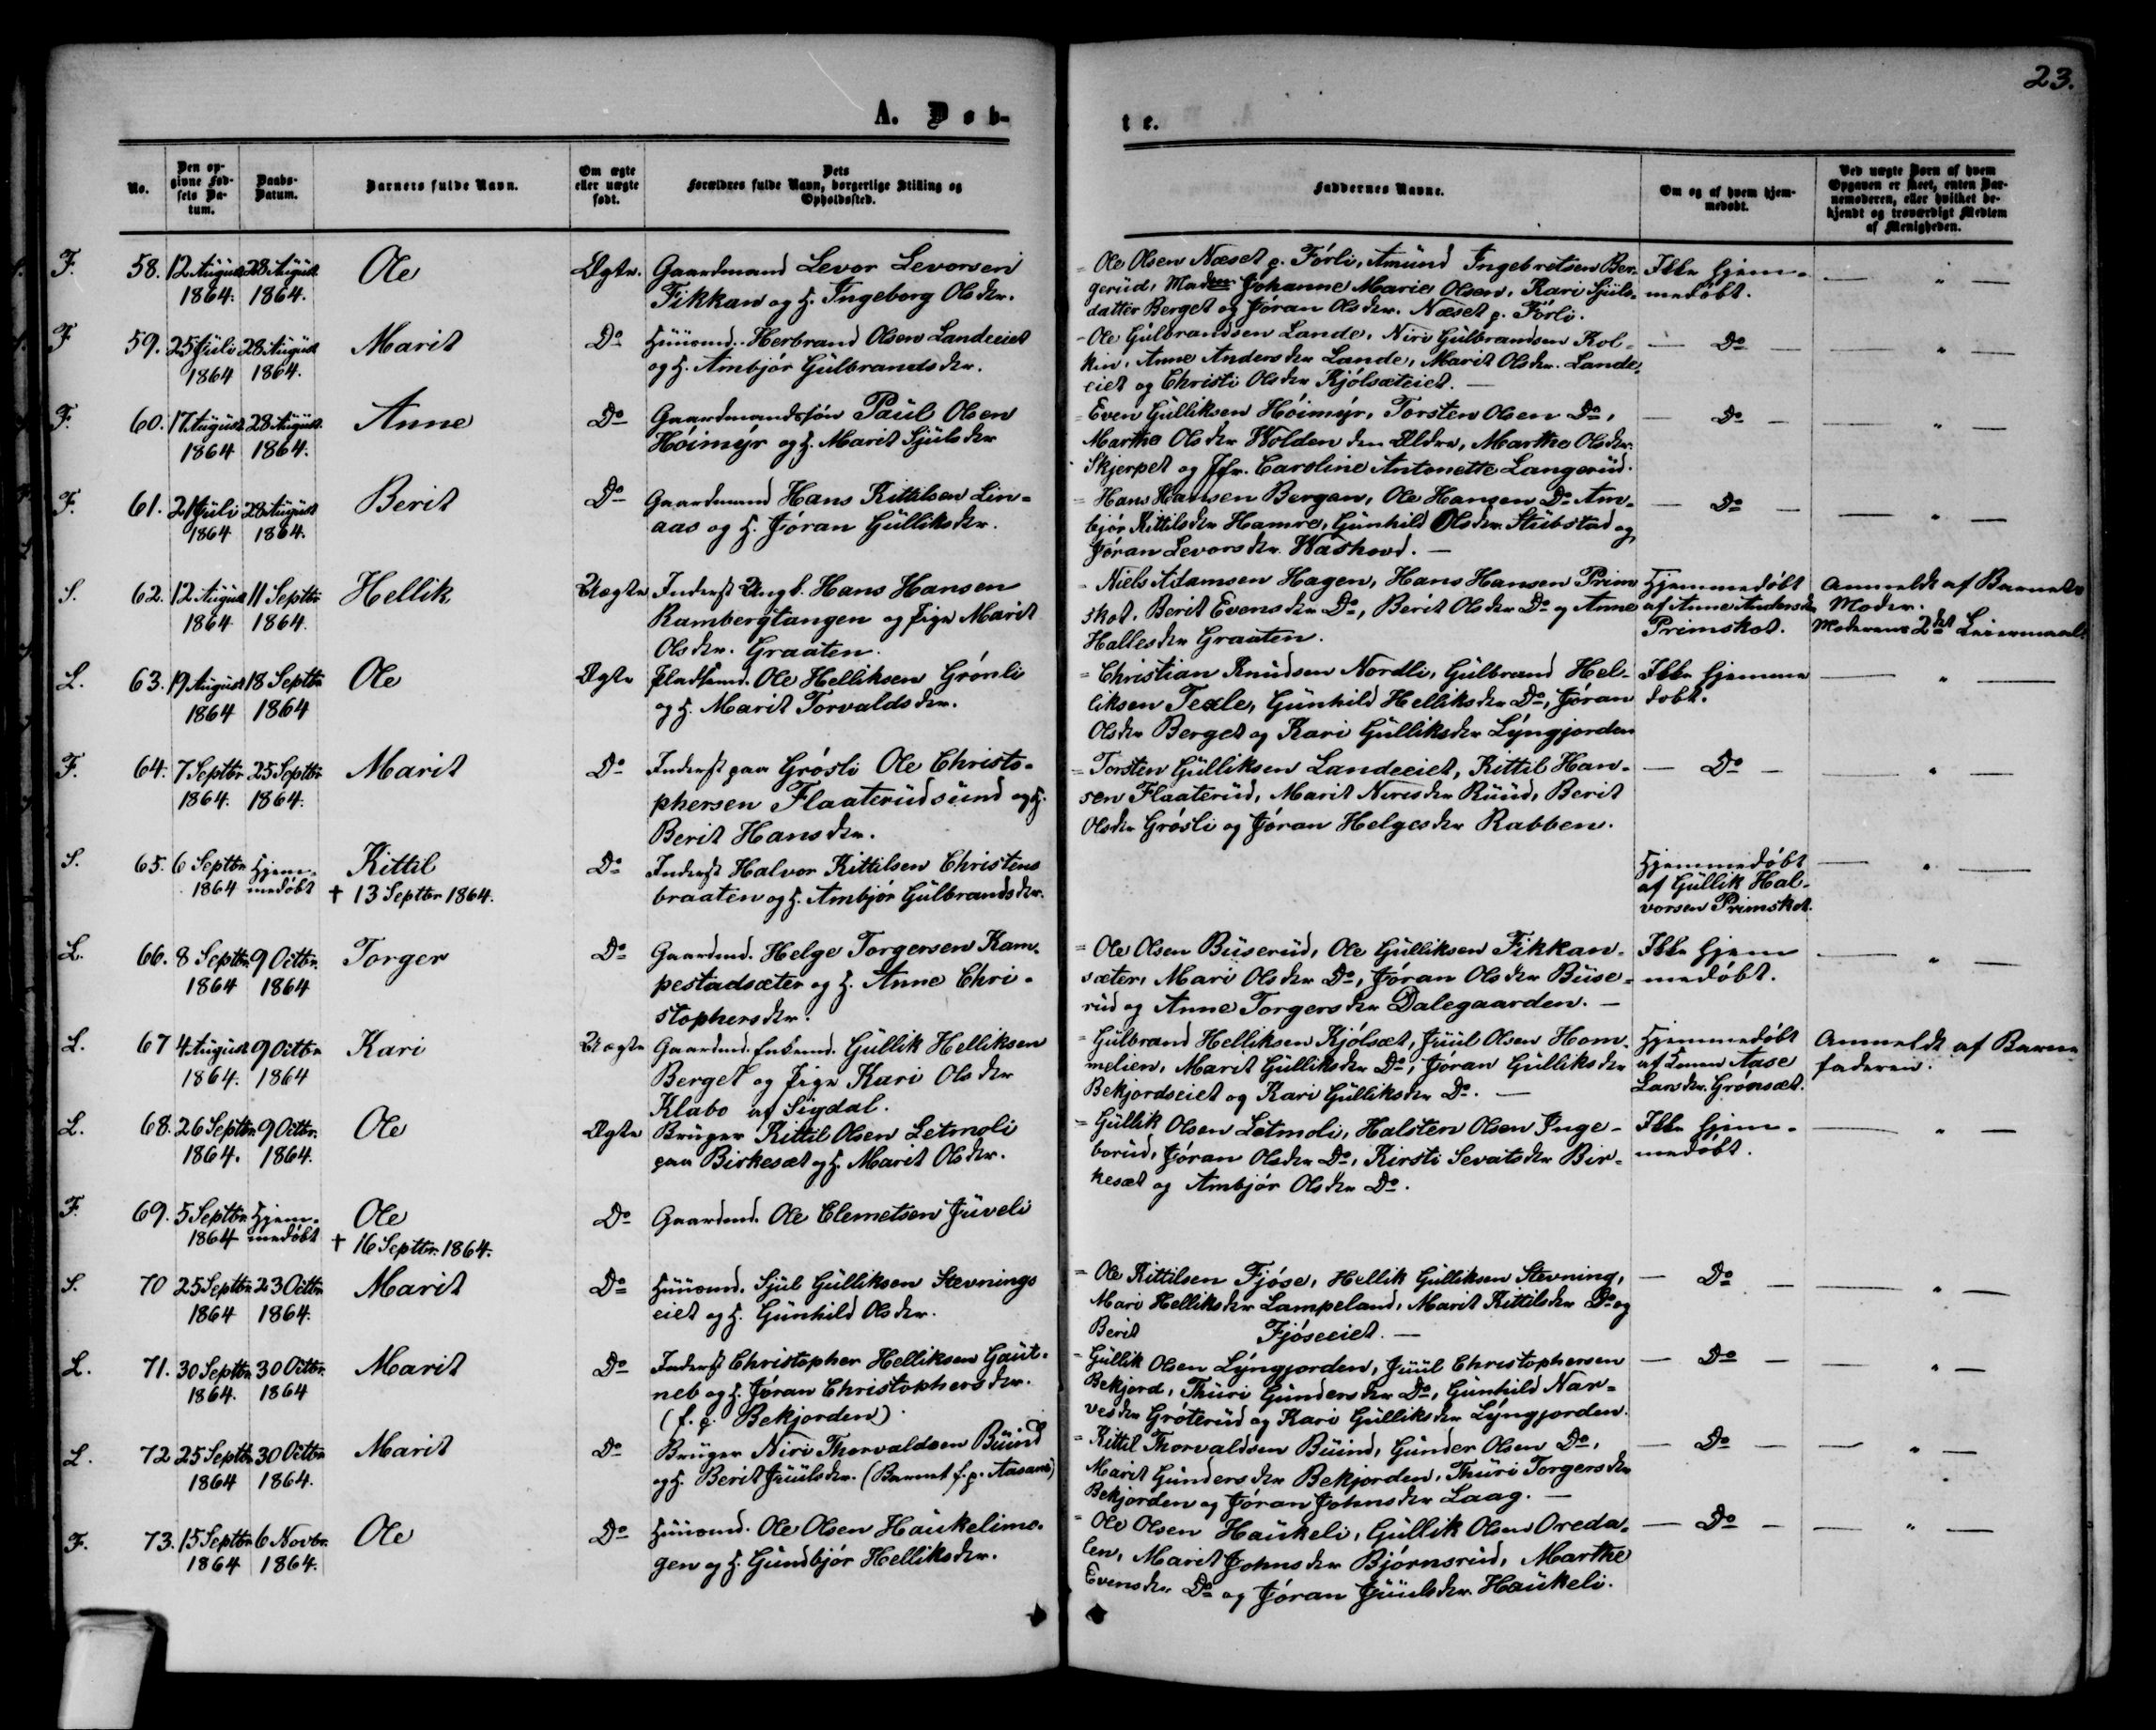 23.
A. Døb-
te.
No.
Den op-
givne Fød-
sels Da-
tum.
Daabs-
Datum.
Barnets fulde Navn.
Om ægte
eller uægte
født.
Dets
Forældres fulde Navn, borgerlige Stilling og
Opholdssted.
Faddernes Navne.
Om og af hvem hjem-
medøbt.
Ved uægte Børn af hvem
Opgaven er skeet, enten Bar-
nemoderen, eller hvilket be-
kjendt og troværdigt Medlem
af Menigheden.
F. 58. 12 August 28 August Ole Ægte. Gaardmand Levor Levorsen
1864. 1864. Fikkan og H. Ingeborg Olsdr.
= Ole Olsen Næset p. Förli, Amünd Ingebretsen Ber-
gerüd, Madme Johanne Marie Olsen, Kari Sjüls-
datter Berget og Jöran Olsdr. Næset p. Förli.
Ikke hjem-
medøbt.
— " —
F 59. 25 Jüli 28 August Marit Do Hüüsmd. Herbrand Olsen Landeeiet
1864 1864. og H. Ambjör Gülbrandsdr.
- Ole Gülbrandsen Lande, Niri Gülbrandsen Kol-
kin, Anne Andersdr Lande, Marit Olsdr. Lande-
eiet og Christi Olsdr Kjölsæteiet. —
— Do
— " —
F. 60. 17 August 28 August. Anne Do Gaardmandssön Paül Olsen
1864 1864. Höimÿr og H. Marit Sjülsdr
= Even Gülliksen Höimÿr, Torsten Olsen Do,
Marthe Olsdr Wolden den Ældre, Marthe Olsdr.
Skjerpet og Jfr. Caroline Antonette Langerüd.
— Do —
— " —
F. 61. 21 Jüli 28 August Berit Do Gaardmand Hans Kittilsen Lin-
1864 1864. aas og H. Jöran Gülliksdr.
= Hans Hansen Bergan, Ole Hansen Do Am-
björ Kittilsdr Hamre, Günhild Olsdr. Stübstad og
Jöran Levorsdr. Washovd. —
— Do —
— " —
S. 62. 12 August 11 Septbr Hellik Uægte Inderst Ungk. Hans Hansen
1864 1864. Rambergtangen og Pige Marit
Olsdr. Graaten.
- Niels Adamsen Hagen, Hans Hansen Prim
skot, Berit Evensdr Do, Berit Olsdr Do og Anne
Hallesdr Graaten.
Hjemmedöbt
af Anne Andersdr
Primskot.
Anmeldt af Barnets
Moder.
Moderens 2det Leiermaal
L. 63. 19 August 18 Septbr Ole Ægte Pladsmd. Ole Helliksen Grönli
1864 1864 og H. Marit Torvaldsdr.
= Christian Knüdsen Nordli, Gülbrand Hel-
liksen Texle, Günhild Helliksdr Do, Jöran
Olsdr Berget og Kari Gülliksdr Lÿngjorden
Ikke hjemme
döbt.
— " —
F. 64. 7 Septbr 25 Septbr Marit Do Inderst paa Grösli Ole Christo-
1864. 1864. phersen Flaaterüdsünd og H.
Berit Hansdr.
= Torsten Gülliksen Landeeiet, Kittil Han-
sen Flaaterüd, Marit Nirisdr Rüüd, Berit
Olsdr Grösli og Jöran Helgesdr Rabben.
— Do —
— " —
S. 65. 6 Septbr Hjem- Kittil Do Inderst Halvor Kittilsen Christens
1864 medöbt † 13 Septbr 1864. braaten og H. Ambjör Gülbrandsdr.
Hjemmedöbt
af Güllik Hal-
vorsen Primskot.
— " —
L. 66. 8 Septbr. 9 Octbr. Torger Do Gaardmd. Helge Torgersen Kam-
1864 1864 pestadsæter og H. Anne Chri-
stophersdr.
= Ole Olsen Büserüd, Ole Gülliksen Fikkan-
sæter, Mari Olsdr Do, Jöran Olsdr Büse-
rüd og Anne Torgersdr Dalegaarden. —
Ikke hjem
medöbt.
— " —
L. 67 4 August 9 Octbr Kari Uægte Gaardmd. Enkemd. Güllik Helliksen
1864. 1864 Berget og Pige Kari Olsdr
Klabo af Sigdal.
= Gülbrand Helliksen Kjölsæt, Jüül Olsen Hom-
melien, Marit Gülliksdr Do, Jöran Gülliksdr
Bekjordseiet og Kari Gülliksdr Do. —
Hjemmedöbt
af Konen Aase
Larsdr. Grönsæt.
Anmeldt af Barne
faderen.
L. 68. 26 Septbr 9 Octbr. Ole Ægte Brüger Kittil Olsen Letmoli
1864. 1864. paa Birkesæt og H. Marit Olsdr.
= Güllik Olsen Letmoli, Halsten Olsen Inge-
borüd, Jöran Olsdr Do, Kirsti Sevatsdr Bir-
kesæt og Ambjör Olsdr Do.
Ikke hjem-
medöbt.
— " —
F. 69. 5 Septbr Hjem- Ole Do Gaardmd. Ole Clemetsen Jüveli
1864 medöbt † 16 Septbr. 1864.
S. 70 25 Septbr 23 Octbr Marit Do Hüüsmd. Sjül Gülliksen Stevnings
1864 1864. eiet og H. Günhild Olsdr.
= Ole Kittilsen Fjöse, Hellik Gülliksen Stevning,
Mari Helliksdr Lampeland, Marit Kittilsdr Do og
Berit Fjöseeiet. —
— Do —
— " —
L. 71. 30 Septbr 30 Octbr Marit Do Inderst Christopher Helliksen Gaüt-
1864. 1864 neb og H. Jöran Christophersdr.
(f. p. Bekjorden).
= Güllik Olsen Lÿngjorden, Jüül Christophersen
Bekjord, Thüri Gündersdr Do, Günhild Nar-
vesdr Gröterüd og Kari Gülliksdr Lÿngjorden.
— Do —
— " —
L. 72 25 Septbr 30 Octbr Marit Do Brüger Niri Thorvaldsen Büind
1864 1864. og H. Berit Jüülsdr. (Barnet f. p. Aasand)
= Kittil Thorvaldsen Büind, Günder Olsen Do,
Marit Gündersdr Bekjorden, Thüri Torgersdr
Bekjorden og Jöran Johnsdr Laag. —
— Do —
— " —
F. 73. 15 Septbr 6 Novbr. Ole Do Hüüsmd. Ole Olsen Haükelimo-
1864 1864. gen og H. Gündbjör Helliksdr.
= Ole Olsen Haükeli, Güllik Olsen Oreda-
len, Marit Johnsdr Björnsrüd, Marthe
Evensdr. Do og Jöran Jüülsdr. Haükeli.
— Do —
— " —